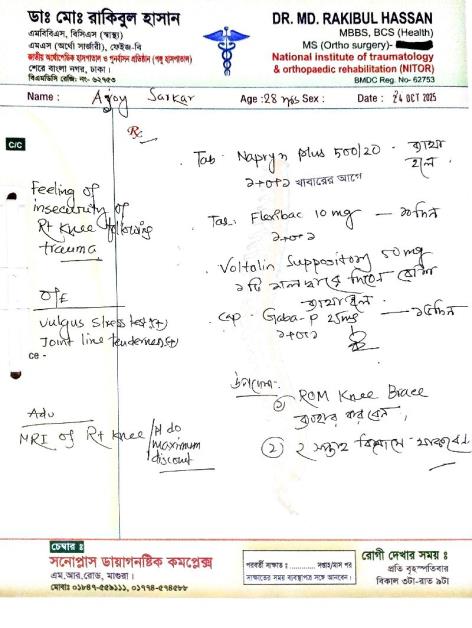 ডাঃ মোঃ রাকিবুল হাসান
এমবিবিএস, বিসিএস (স্বাস্থ্য)
এমএস (অর্থো সার্জারী), ফেইজ-বি
জাতীয় অর্থোপেডিক হাসপাতাল ও পুনর্বাসন প্রতিষ্ঠান (পঙ্গু হাসপাতাল)
শেরে বাংলা নগর, ঢাকা।
বিএমডিসি রেজি: নং- ৬২৭৫৩
DR. MD. RAKIBUL HASSAN
MBBS, BCS (Health)
MS (Ortho surgery)-
National institute of traumatology
& orthopaedic rehabilitation (NITOR)
BMDC Reg. No- 62753
Name : Ajoy Sarkar Age : 28 yrs Sex : Date : 24 OCT 2025
C/C
Feeling of
insecurity of
Rt knee following
trauma
O/E
Vulgus stress test (+)
Joint line tenderness (+)
ce -
Adv
MRI of Rt knee
Pl do
maximum
discount
Rx
Tab. Napryn Plus 500/20 - ব্যাথা
হলে
১+০+১ খাবারের আগে
Tab. Flexibac 10 mg —
১+০+১
Voltalin Suppository 50 mg
১ টি মলদ্বারে দিবেন বেশি
ব্যাথা হলে
Cap. Gaba-P 25mg — ১৫দিন
১+০+১
উপদেশ:-
১) ROM Knee Brace
ব্যবহার করবেন,
২) ২ সপ্তাহ বিশ্রামে থাকবেন
চেম্বার ঃ
সনোপ্লাস ডায়াগনষ্টিক কমপ্লেক্স
এম.আর.রোড, মাগুরা।
মোবাঃ ০১৮৪৭-৫৫৯১১১, ০১৭৭৪-৫৭৪৫৮৮
পরবর্তী সাক্ষাত ঃ ............ সপ্তাহ/মাস পর
সাক্ষাতের সময় ব্যবস্থাপত্র সঙ্গে আনবেন।
রোগী দেখার সময় ঃ
প্রতি বৃহস্পতিবার
বিকাল ৩টা-রাত ৯টা